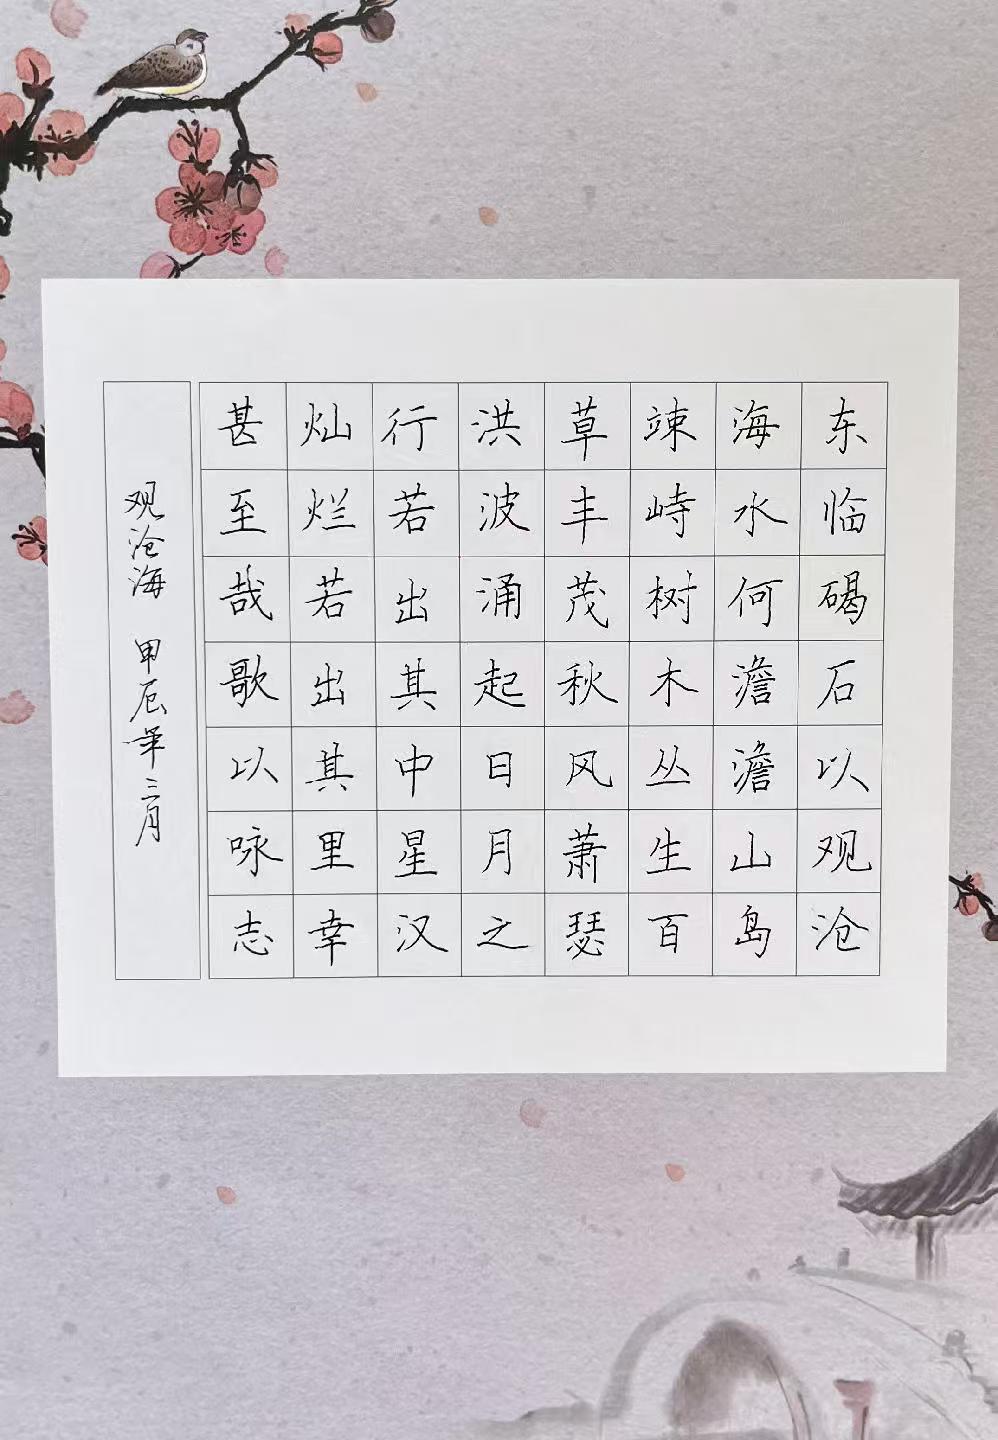 东临碣石以观沧
海水何澹澹山岛
竦峙树木丛生百
草丰茂秋风萧瑟
洪波涌起日月之
行若出其中星汉
灿烂若出其里幸
甚至哉歌以咏志
观沧海 甲辰年三月